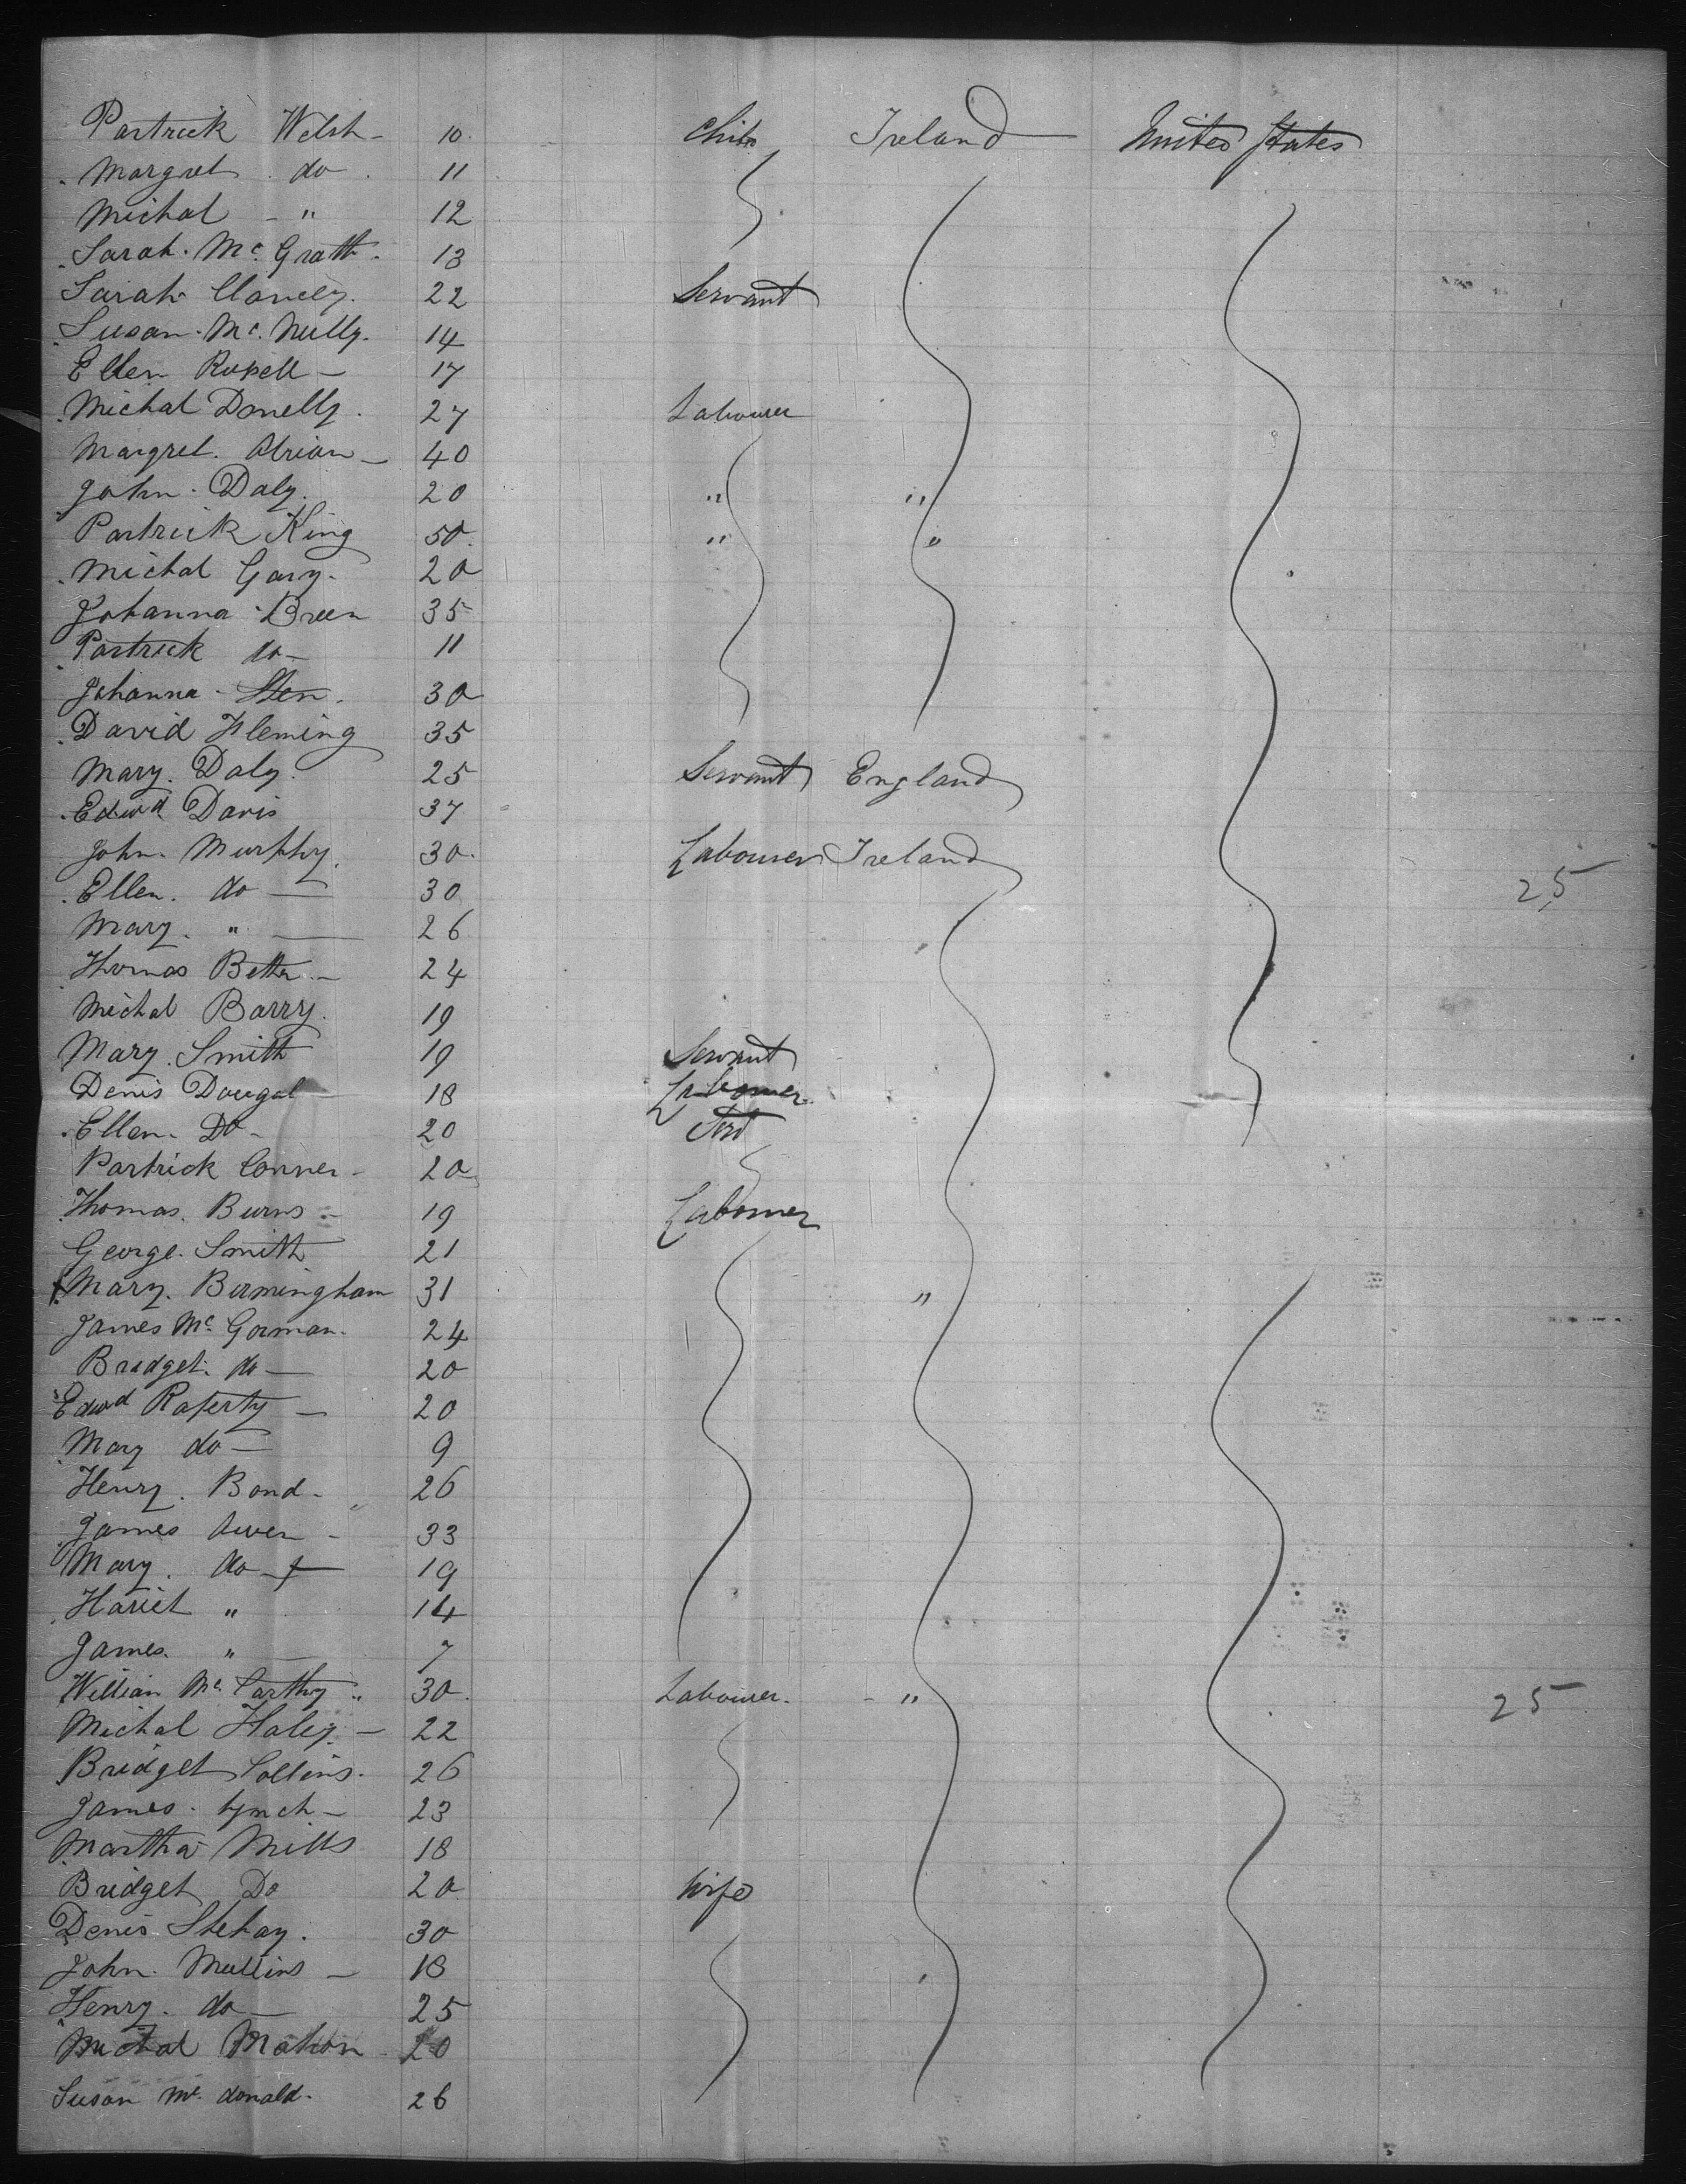 Partrick Welsh - 10. Child Ireland United States
Margret do. 11
Michal - " 12
Sarah. Mc. Grath. 13
Sarah 22 Servant
Susan. Mc. Nully. 14
Ellen Russell - 17
Michal Donelly. 27 Labourer
Margret. 40
John. Daly. 20 " "
Partrick King 50. " "
Michal Gary. 20
Johanna Breen 35
Partrick do- 11
Johanna - 30
David Fleming 35
Mary. Daly. 25 Servant England
Edwd Davis 37
John. Murphy. 30. Labourer Ireland
Ellen. do — 30 25
Mary. " — 26
Thomas Better - 24
Michal Barry. 19
Mary. Smith 19 Servant
Denis Dougal - 18 Labourer.
Ellen. Do - 20 Serv
Partrick Conner - 20
Thomas. Burns - 19 Labourer
George. Smith 21
Mary. Birmingham 31 "
James Mc. Gorman. 24
Bridget. do — 20
Edwd Raferty — 20
Mary do — 9
Henry. Bond - 26
James Owen - 33
Mary. do - 19
Hariet " 14
James. " 7
William Mc. Carthy " 30. Labourer. - " 25
Michal Haley. — 22
Bridget Collins. 26
James. Lynch — 23
Martha Mills 18
Bridget Do 20 Wife
Denis Shehay. 30
John. Mullins — 18
Henry. do — 25
Michal Mahon 20
Susan Mc. donald. 26